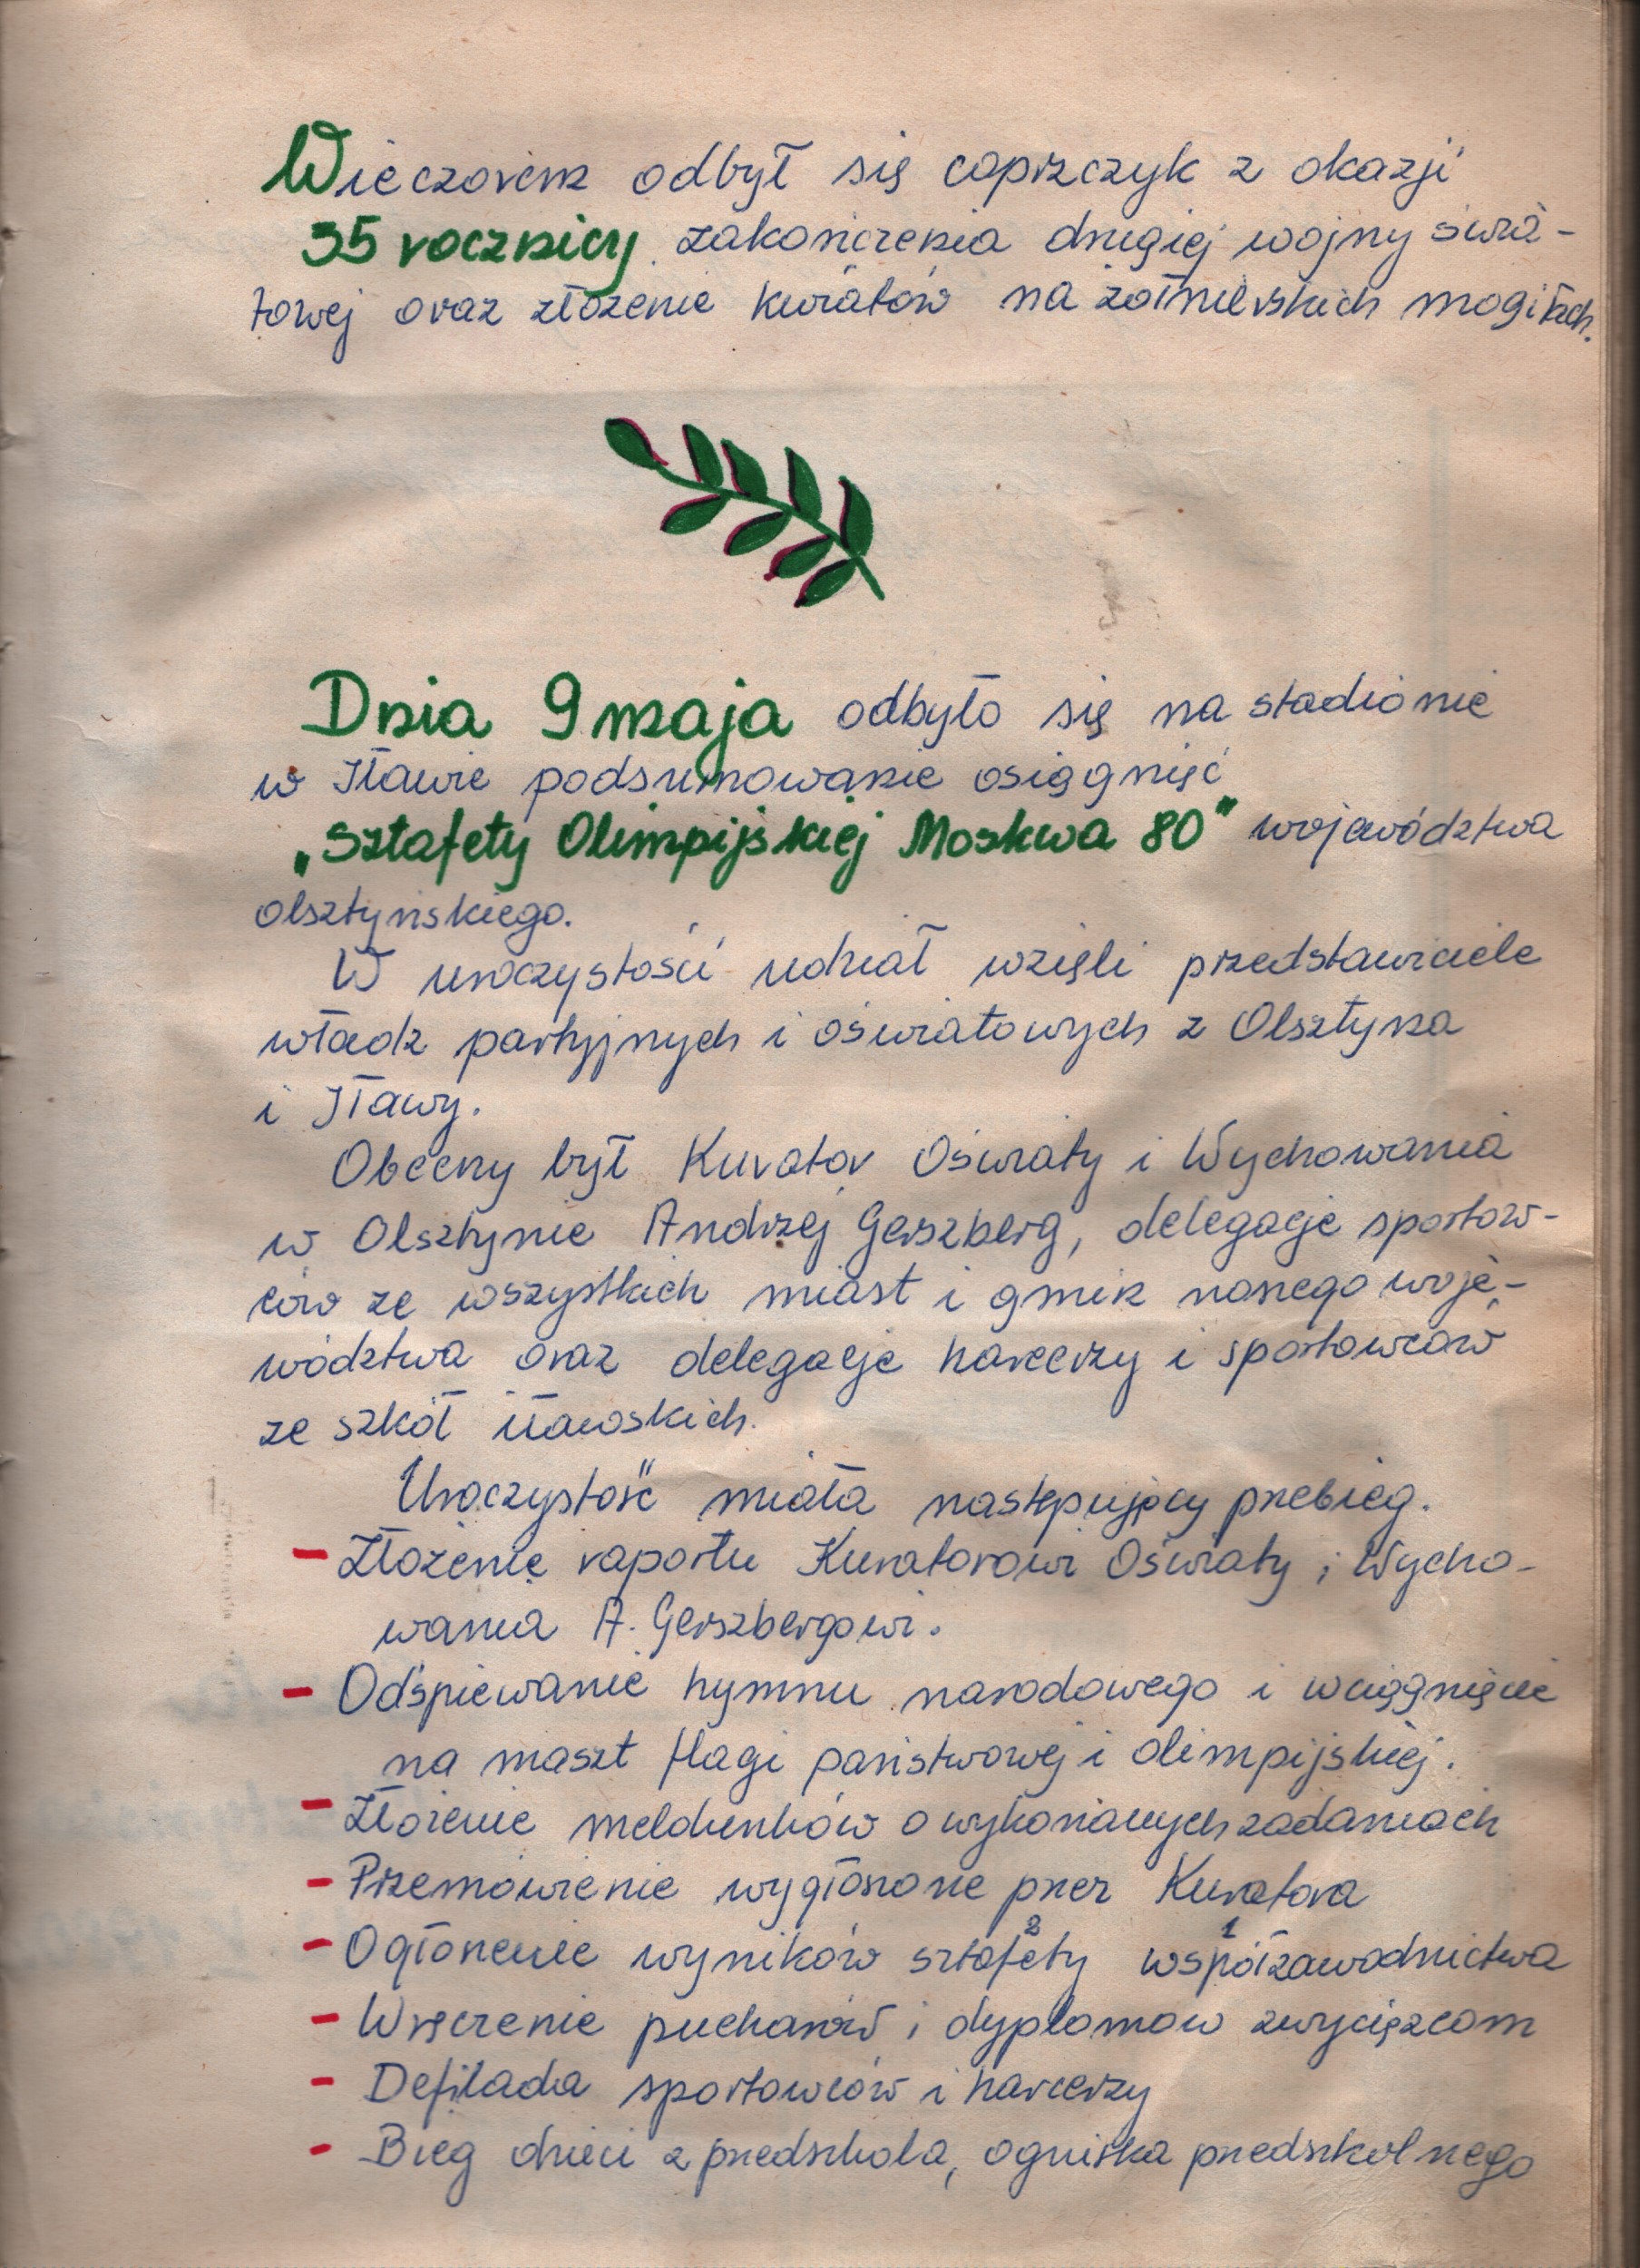 Wieczorem odbył się capszczyk z okazji
35 rocznicy zakończenia drugiej wojny świa-
towej oraz złożenie kwiatów na żołnierskich mogiłach.
Dnia 9 maja odbyło się na stadionie
w Iławie podsumowanie osiągnięć
„Sztafety Olimpijskiej Moskwa 80" województwa
olsztyńskiego.
W uroczystości udział wzięli przedstawiciele
władz partyjnych i oświatowych z Olsztyna
i Iławy.
Obecny był Kurator Oświaty i Wychowania
w Olsztynie Andrzej Gerszberg, delegacje sportow-
ców ze wszystkich miast i gmin naszego woje-
wództwa oraz delegacje harcerzy i sportowców
ze szkół iławskich.
Uroczystość miała następujący przebieg.
- Złożenie raportu Kuratorowi Oświaty i Wycho-
wania A. Gerszbergowi.
- Odśpiewanie hymnu narodowego i wciągnięcie
na maszt flagi państwowej i olimpijskiej.
- Złożenie meldunków o wykonanych zadaniach
- Przemówienie wygłoszone przez Kuratora
- Ogłoszenie wyników sztafety 2 współzawodnictwa 1
- Wręczenie pucharów i dyplomów zwycięzcom
- Defilada sportowców i harcerzy
- Bieg dzieci z przedszkola, ogniska przedszkolnego